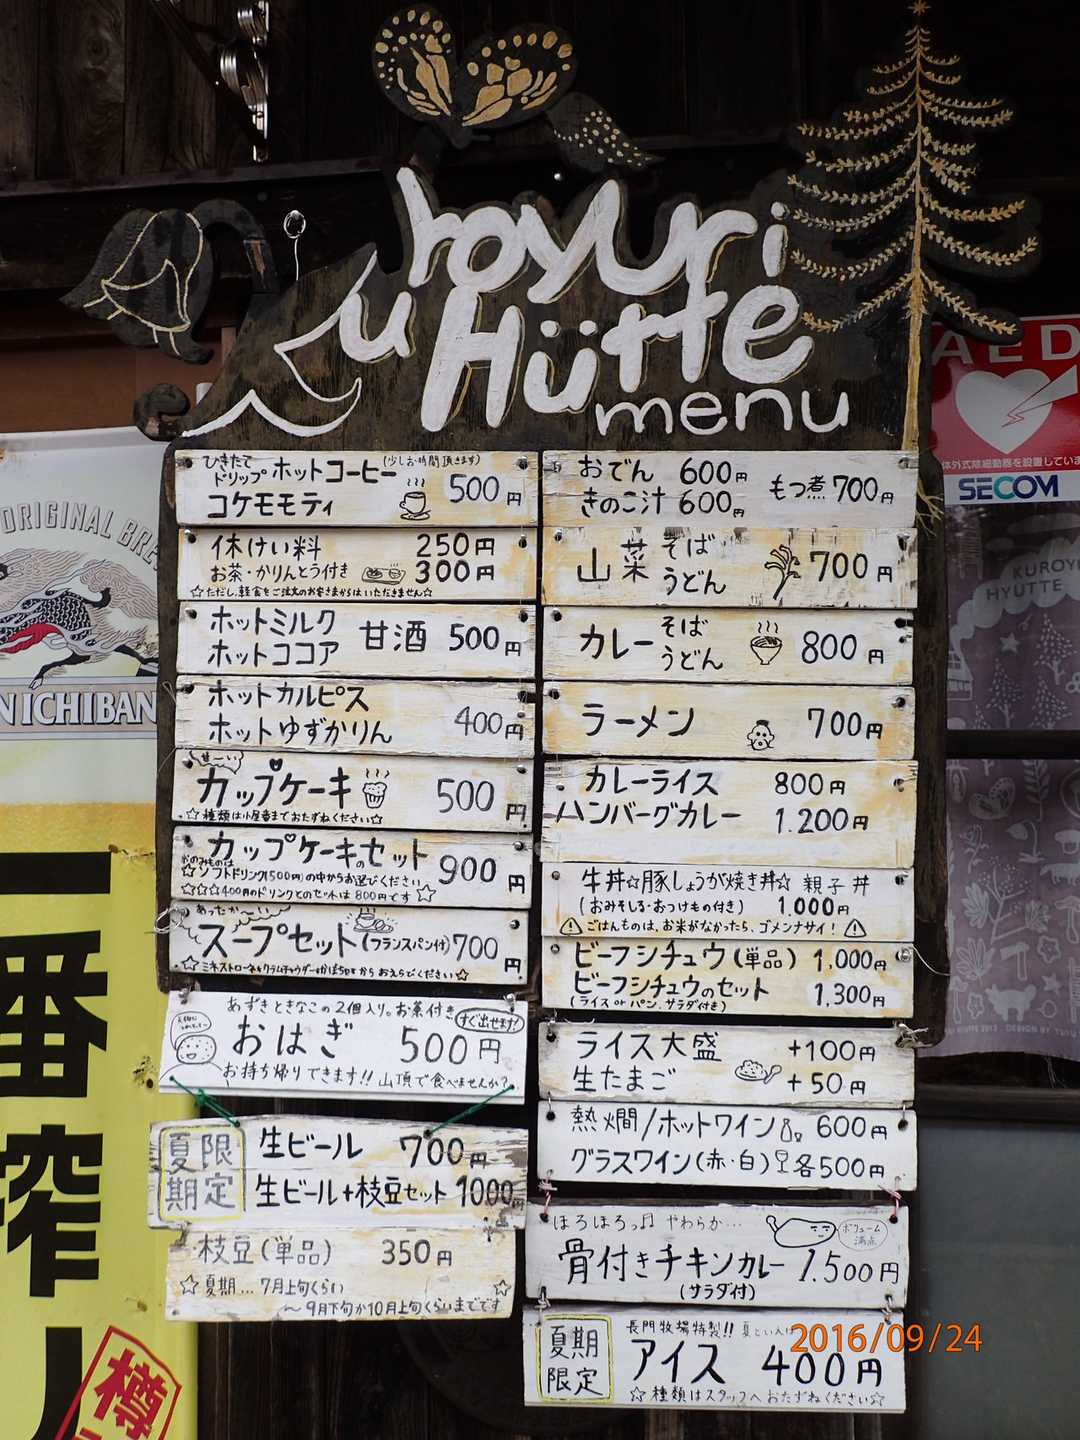 Kuroyuri
Hütte
menu
ひきたて
ドリップ ホットコーヒー (少しお時間頂きます)
コケモモティ 500円
休けい料 250円
お茶・かりんとう付き 300円
☆ただし、軽食をご注文のお客さまからはいただきません☆
ホットミルク
ホットココア 甘酒 500円
ホットカルピス
ホットゆずかりん 400円
カップケーキ 500円
☆種類は小屋番までおたずねください☆
カップケーキのセット 900円
おのみものは
☆ソフトドリンク(500円)の中からお選びください
☆☆☆400円のドリンクとのセットは800円です☆
あったか〜い
スープセット(フランスパン付) 700円
おえらびください☆
あずきときなこの2個入り。お茶付き
すぐ出せます!
おはぎ 500円
お持ち帰りできます!! 山頂で食べませんか?
夏限
期定
生ビール 700円
生ビール+枝豆セット 1000円
枝豆(単品) 350円
☆夏期...7月上旬くらい ☆
〜9月下旬か10月上旬くらいまでです
おでん 600円
きのこ汁 600円 もつ煮 700円
山菜 そば
うどん 700円
カレー そば
うどん 800円
ラーメン 700円
カレーライス 800円
ハンバーグカレー 1.200円
牛丼☆豚しょうが焼き丼☆ 親子丼
(おみそしる・おつけもの付き) 1.000円
⚠ごはんものは、お米がなかったら、ゴメンナサイ!⚠
ビーフシチュウ(単品) 1,000円
ビーフシチュウのセット 1,300円
(ライス or パン、サラダ付き)
ライス大盛 +100円
生たまご +50円
熱燗/ホットワイン 600円
グラスワイン(赤・白) 各500円
ほろほろっ♫ やわらか...
ボリューム
満点
骨付きチキンカレー 1.500円
(サラダ付)
夏期
限定
長門牧場特製!! 夏といえば
アイス 400円
☆種類はスタッフへおたずねください☆
2016/09/24
AED
体外式除細動器を設置していま
SECOM
KUROYU
HYUTTE
ORIGINAL BRE
N ICHIBAN
一番搾り
樽